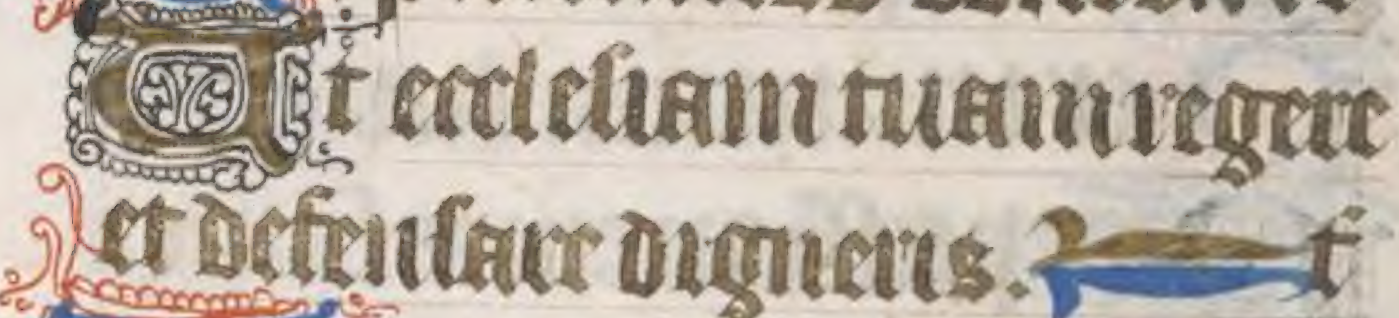 Ut ecclesiam tuam regere
et defensare digneris. t